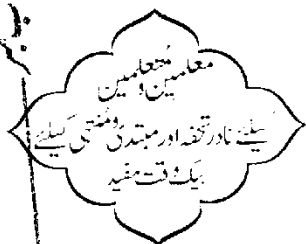 معلمین و متعلمین
کیلئے نادر تحفہ اور مبتدی و منتھی کیلئے
بیک وقت مفید